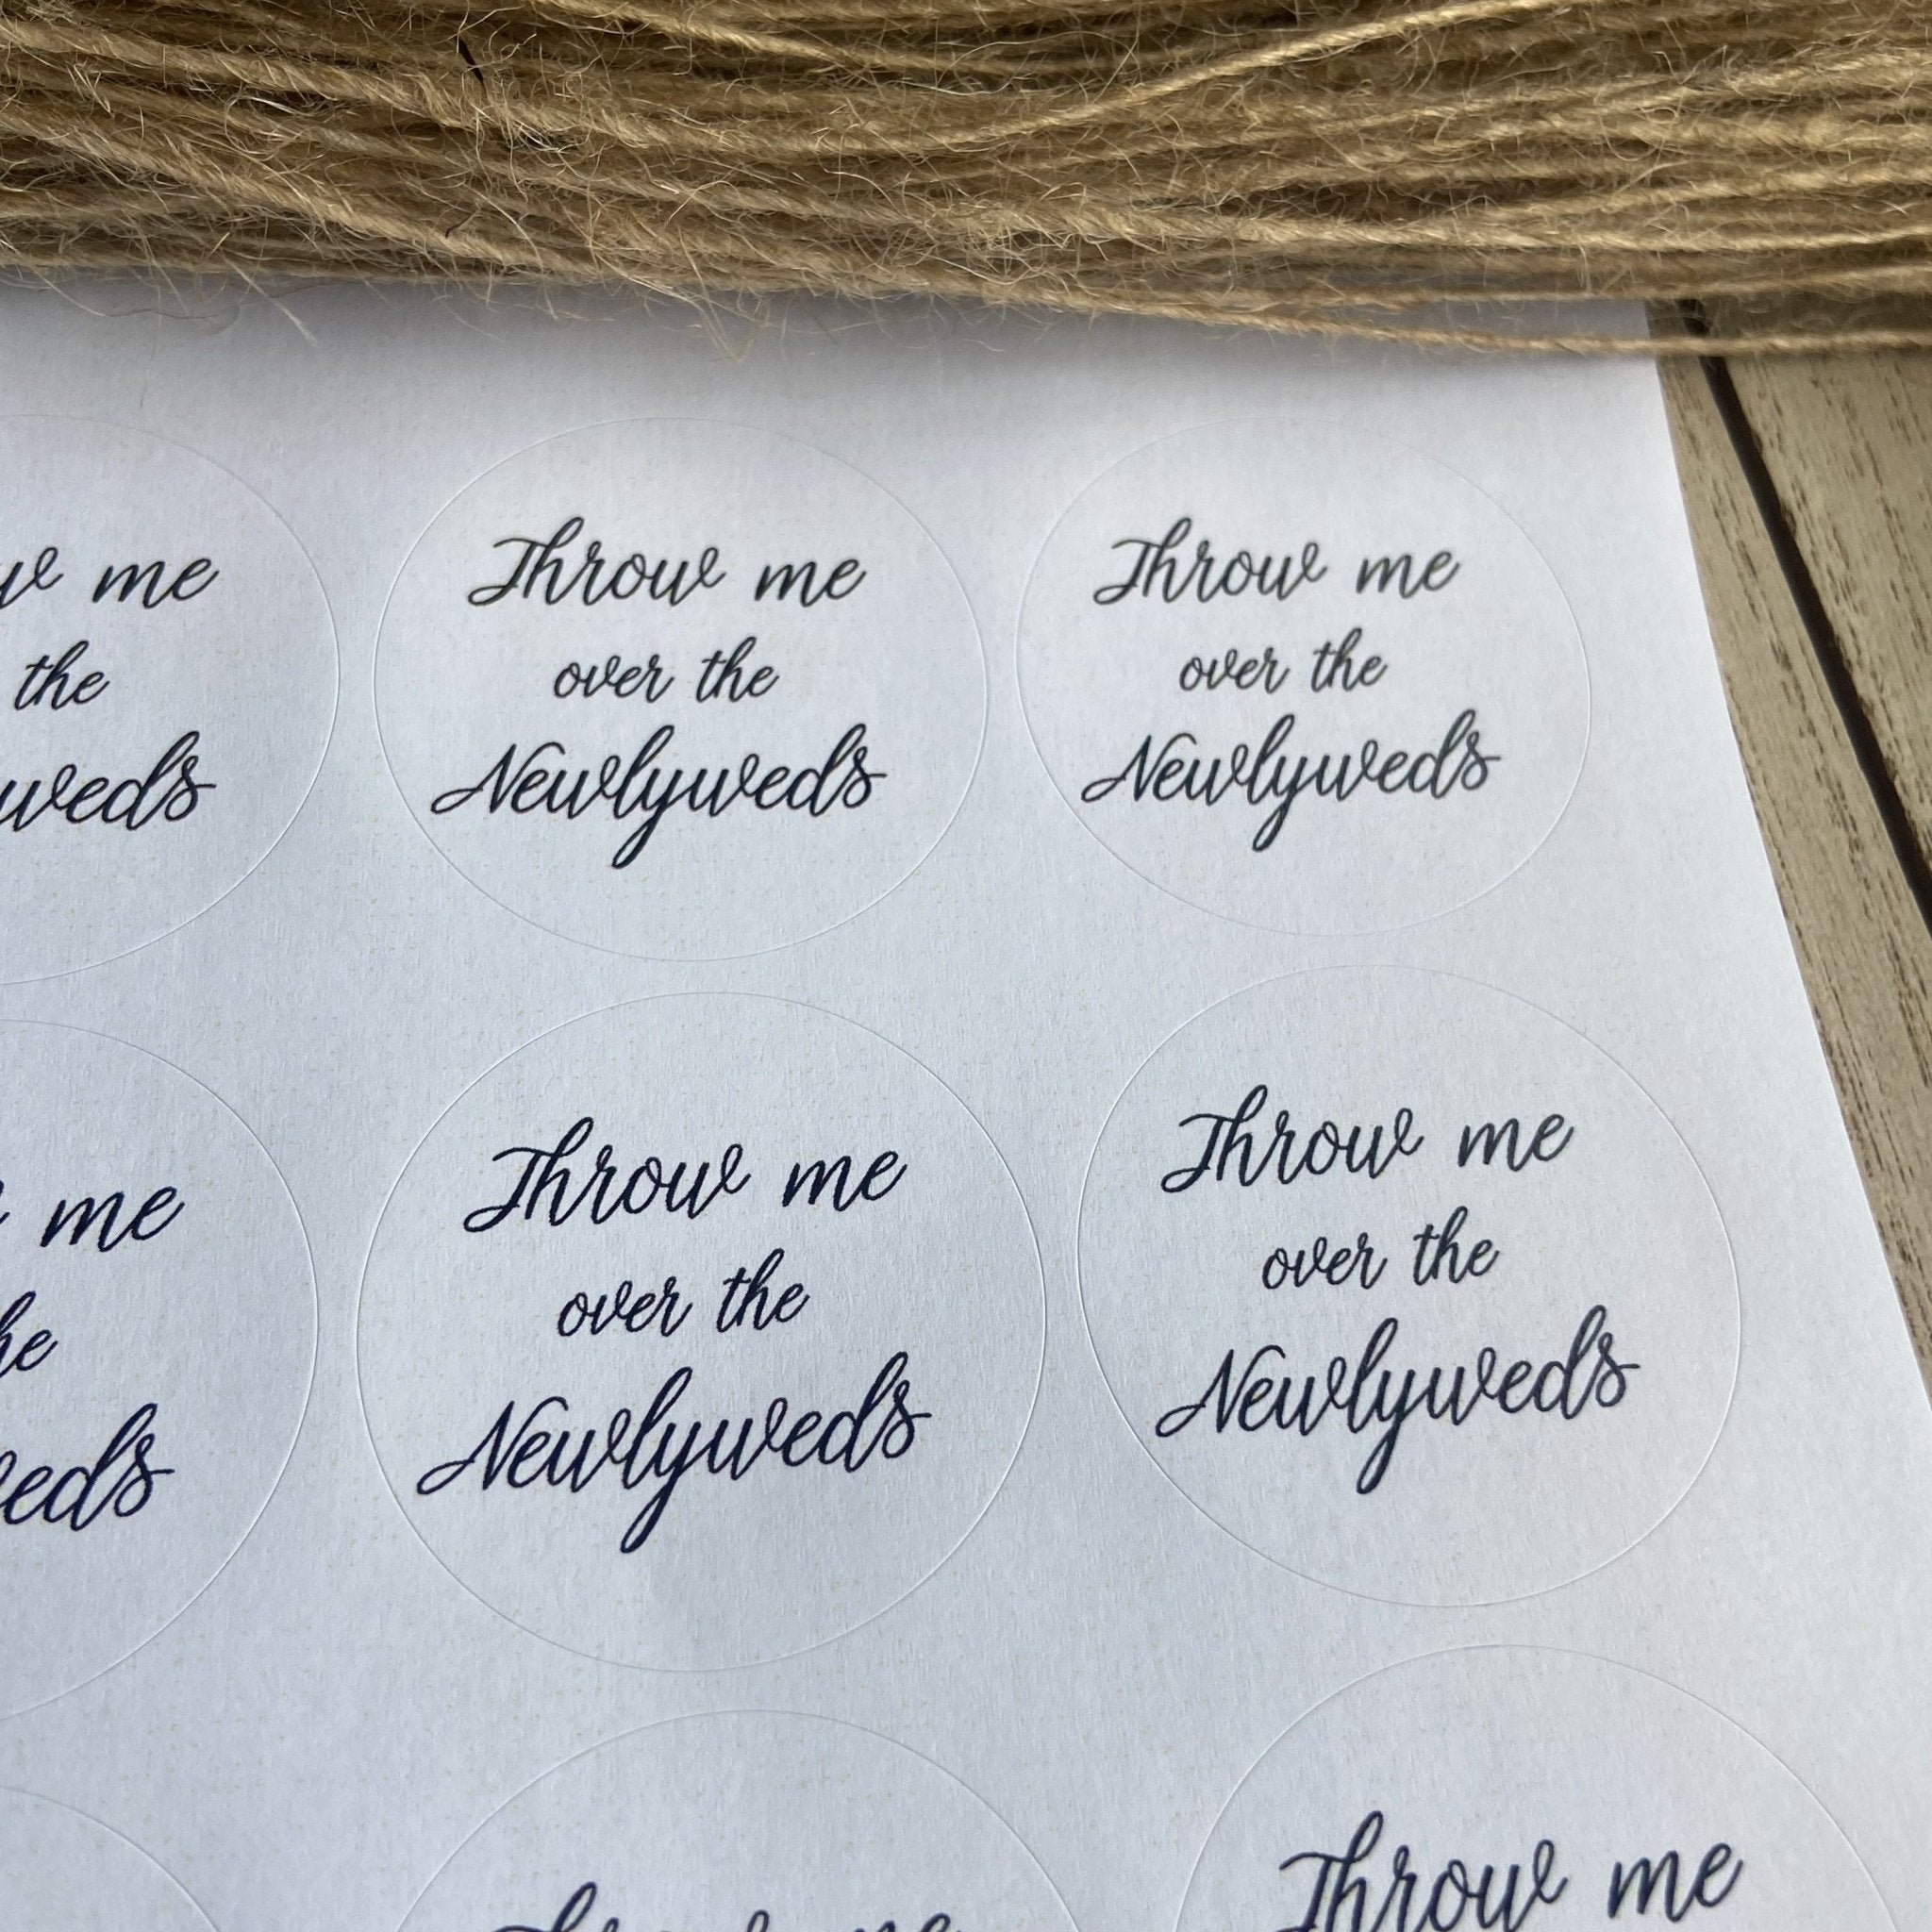 me
the
weds
Throw me
over the
Newlyweds
Throw me
over the
Newlyweds
me
he
eds
Throw me
over the
Newlyweds
Throw me
over the
Newlyweds
Throw me